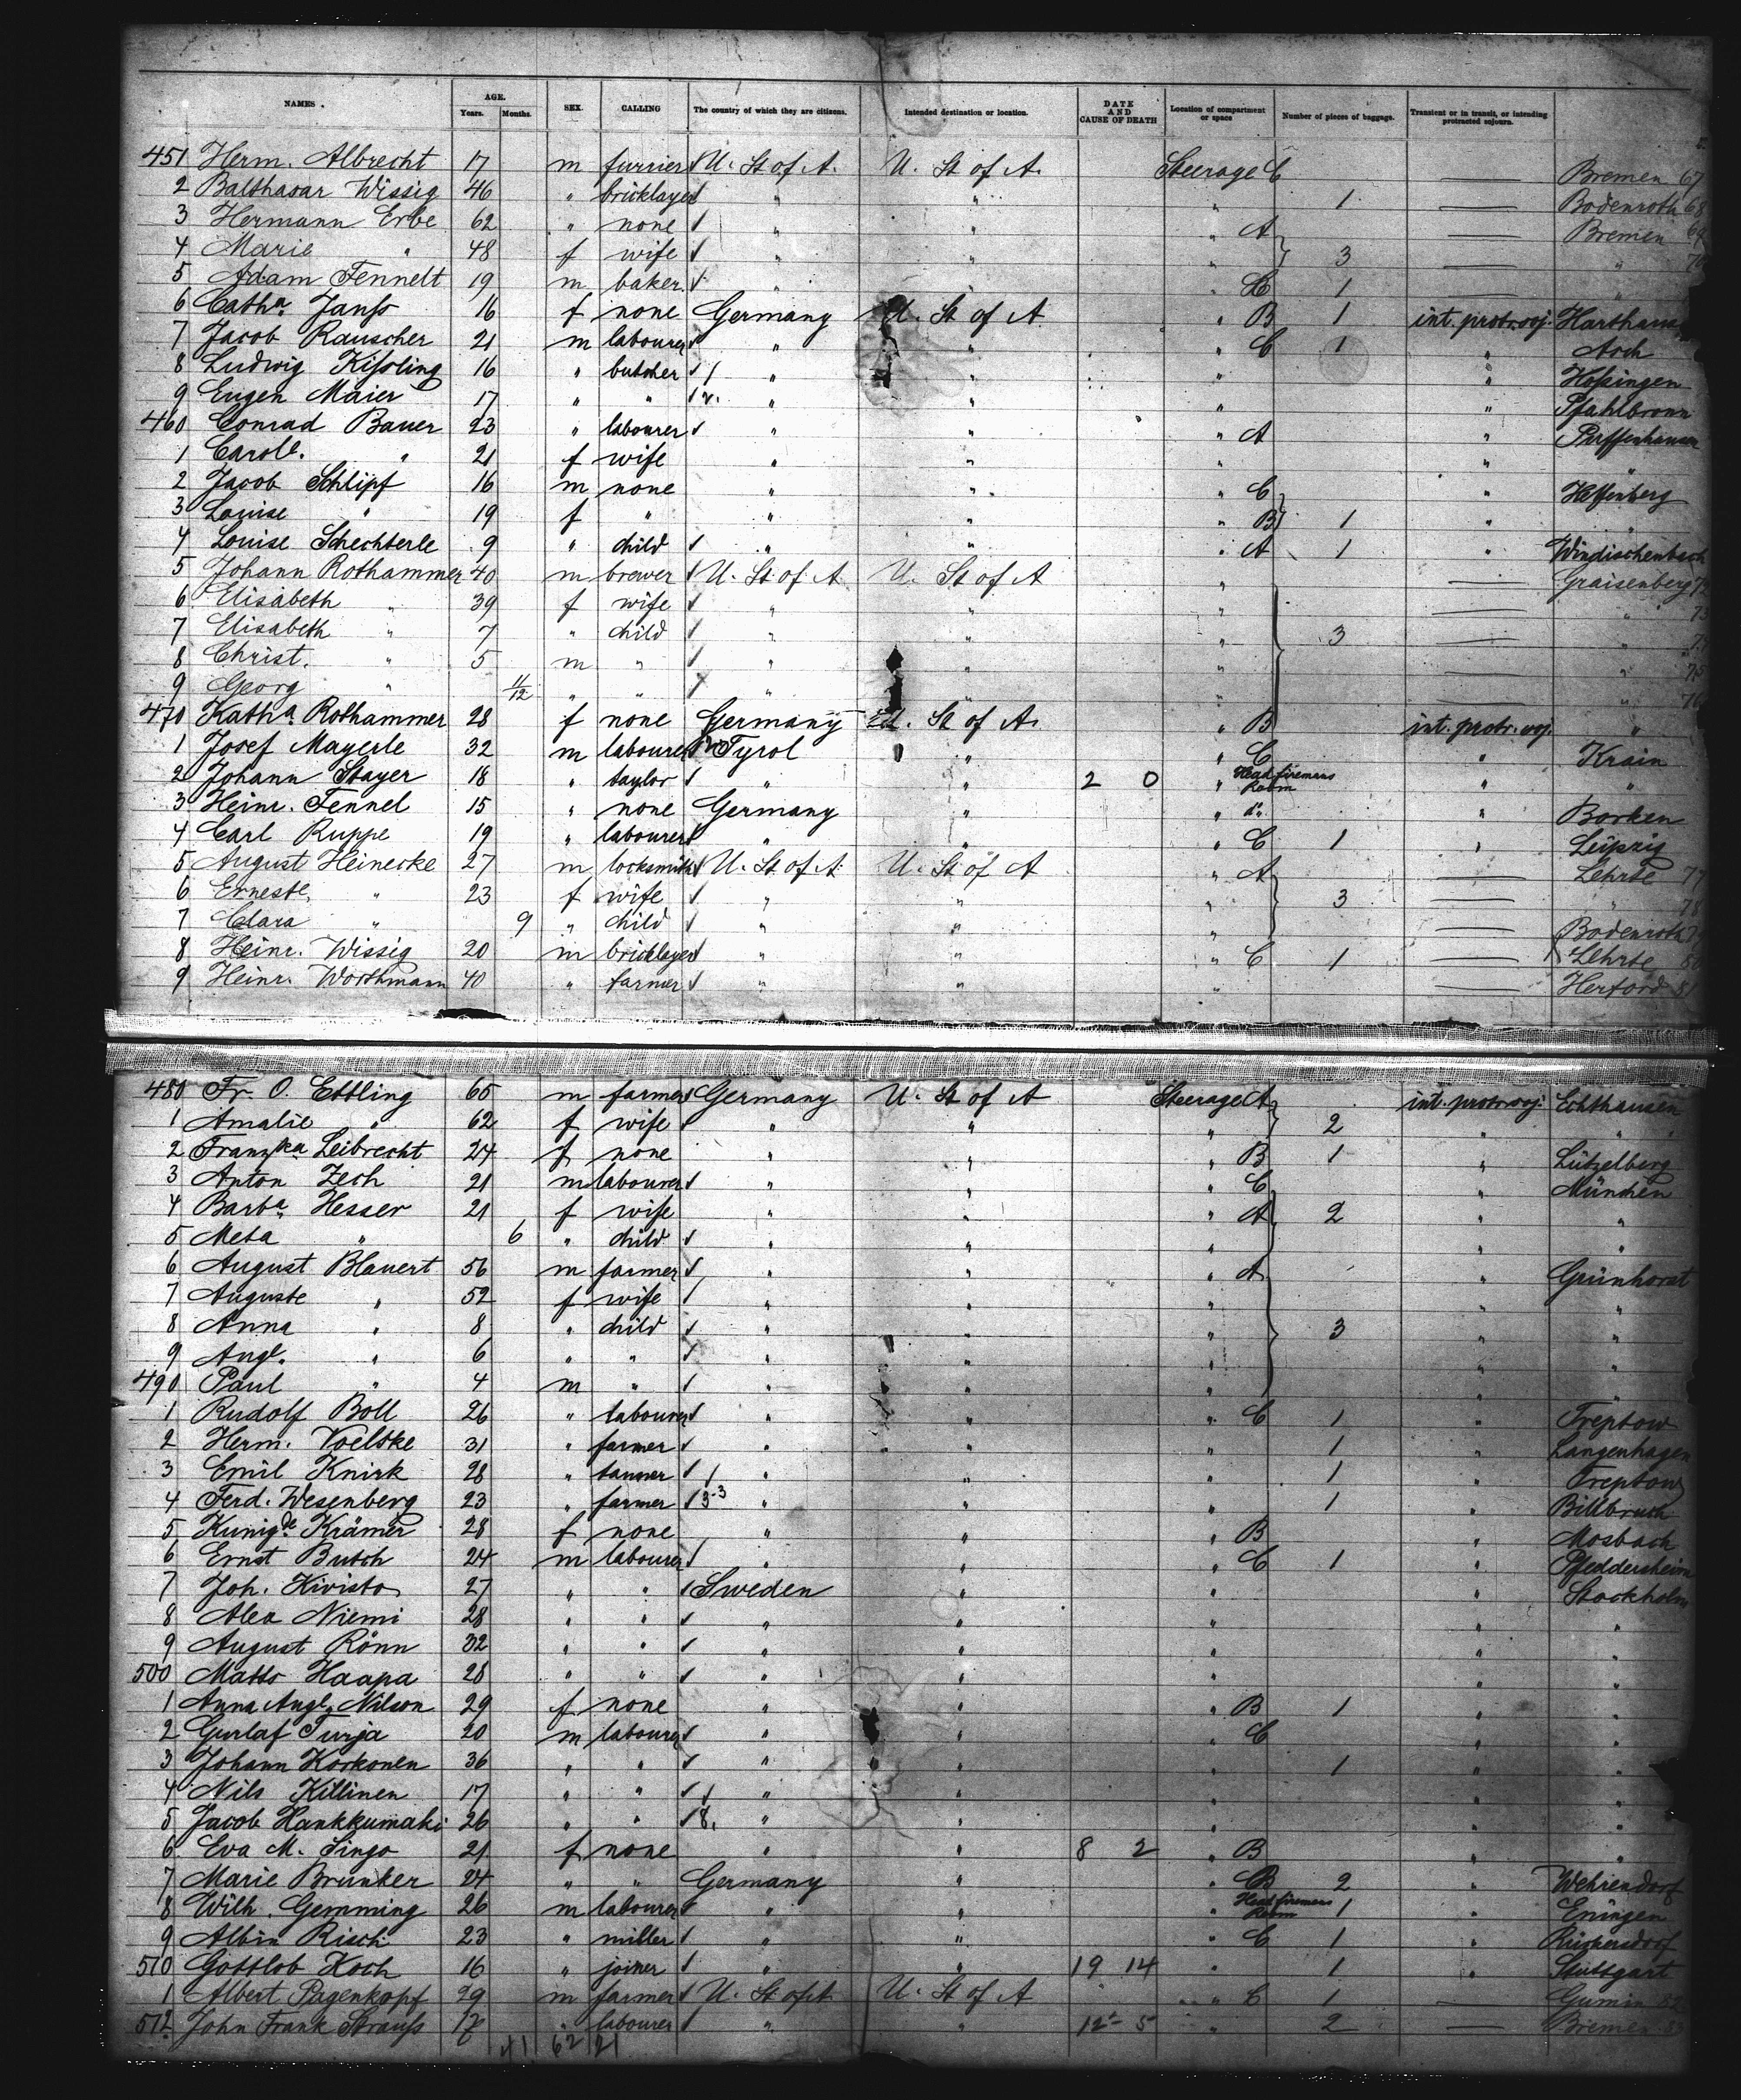 NAMES. AGE. SEX. CALLING The country of which they are citizens. Intended destination or location. DATE AND CAUSE OF DEATH Location of compartment or space Number of pieces of baggage. Transient or in transit, or intending protracted sojourn.
Years. Months.
451 Herm. Albrecht 17 m furrier U. St of A. U. St of A. Steerage C — Bremen 67
2 Balthasar Wissig 46 " bricklayer " " " 1 — Bodenroth 68
3 Hermann Erbe 62 " none " " " A — Bremen 69
4 Marie " 48 f wife " " " 3 — "
5 Adam Fennelt 19 m baker " " " 1 — "
6 Catha. Janß 16 f none Germany U. St of A " B 1 int. protr. soj.
7 Jacob Rauscher 21 m labourer " " " C 1 "
8 Ludwig Kißling 16 " butcher " " " " Hoßingen
9 Eugen Maier 17 " " " " " " Pfahlbronn
460 Conrad Bauer 23 " labourer " " " A "
1 Carole. " 21 f wife " " " " "
2 Jacob Schlipf 16 m none " " " C "
3 Louise " 19 f " " " " B 1 " "
4 Louise Schechterle 9 " child " " " A 1 " Windischenbach
5 Johann Rothammer 40 m brewer U. St. of A U. St of A " — Graisenberg 72
6 Elisabeth " 39 f wife " " " — " 73
7 Elisabeth " 7 " child " " " 3 — "
8 Christ. " 5 m " " " " — " 75
9 Georg " 11/12 " " " " " — " 76
470 Katha. Rothammer 28 f none Germany St of A. " B int. protr. soj. "
1 Josef Mayerle 32 m labourer Tyrol " " C " Krain
2 Johann Stayer 18 " taylor " " 2 0 " Head firemans Room " "
3 Heinr. Fennel 15 " none Germany " " do. " Borken
4 Carl Ruppe 19 " labourer " " " C 1 " Leipzig
5 August Heinecke 27 m locksmith U. St of A. U. St of A " A — Lehrte 77
6 Erneste " 23 f wife " " " 3 — " 78
7 Clara " 9 " child " " " — Bodenroth
8 Heinr. Wissig 20 m bricklayer " " " C 1 — Lehrte 80
9 Heinr. Worthmann 40 " farmer " " " — Herford 81
480 Fr. O. Ettling 65 m farmer Germany U. St of A Steerage A int. protr. soj. Echthausen
1 Amalie " 62 f wife " " " 2 " "
2 Franzka Leibrecht 24 f none " " " B 1 " Lützelberg
3 Anton Zech 21 m labourer " " " C " München
4 Barba. Hesser 21 f wife " " " A 2 " "
5 Meta " 6 " child " " " " "
6 August Blauert 56 m farmer " " " A " Grünhorst
7 Auguste " 52 f wife " " " " "
8 Anna " 8 " child " " " 3 " "
9 Auge. " 6 " " " " " " "
490 Paul " 4 m " " " " " "
1 Rudolf Boll 26 " labourer " " " C 1 " Treptow
2 Herm. Voelske 31 " farmer " " " 1 " Langenhagen
3 Emil Knirk 28 " tanner " " " 1 " Treptow
4 Ferd. Wesenberg 23 " farmer 3-3 " " " 1 " Billbruch
5 Kunigde. Krämer 28 f none " " " B " Mosbach
6 Ernst Butch 24 m labourer " " " C 1 " Pfeddersheim
7 Joh. Kivisto 27 " " Sweden " " " Stockholm
8 Alex Niemi 28 " " " " " " "
9 August Rönn 32 " " " " " " "
500 Matts Haapa 28 " " " " " " "
1 Anna Auge. Nilson 29 f none " " " B 1 " "
2 Gustaf Turja 20 m labourer " " " C " "
3 Johann Korkonen 36 " " " " " 1 " "
4 Nils Killinen 17 " " " " " " "
5 Jacob Hankkumaki 26 " " 8. " " " " "
6 Eva M. Singo 21 f none " " 8 2 " B " "
7 Marie Brunker 24 " " Germany " " B 2 " Wehrendorf
8 Wilh. Gemming 26 m labourer " " " Head firemans Room 1 " Eningen
9 Albin Risch 23 " miller " " " C 1 " Rückersdorf
510 Gottlob Koch 16 " joiner " " 19 14 " 1 " Stuttgart
1 Albert Pagenkopf 29 m farmer U. St of A U. St of A " C 1 — Gumin 82
512 John Frank Strauß 17 " labourer " " 12 5 " 2 — Bremen 83
41 62 21